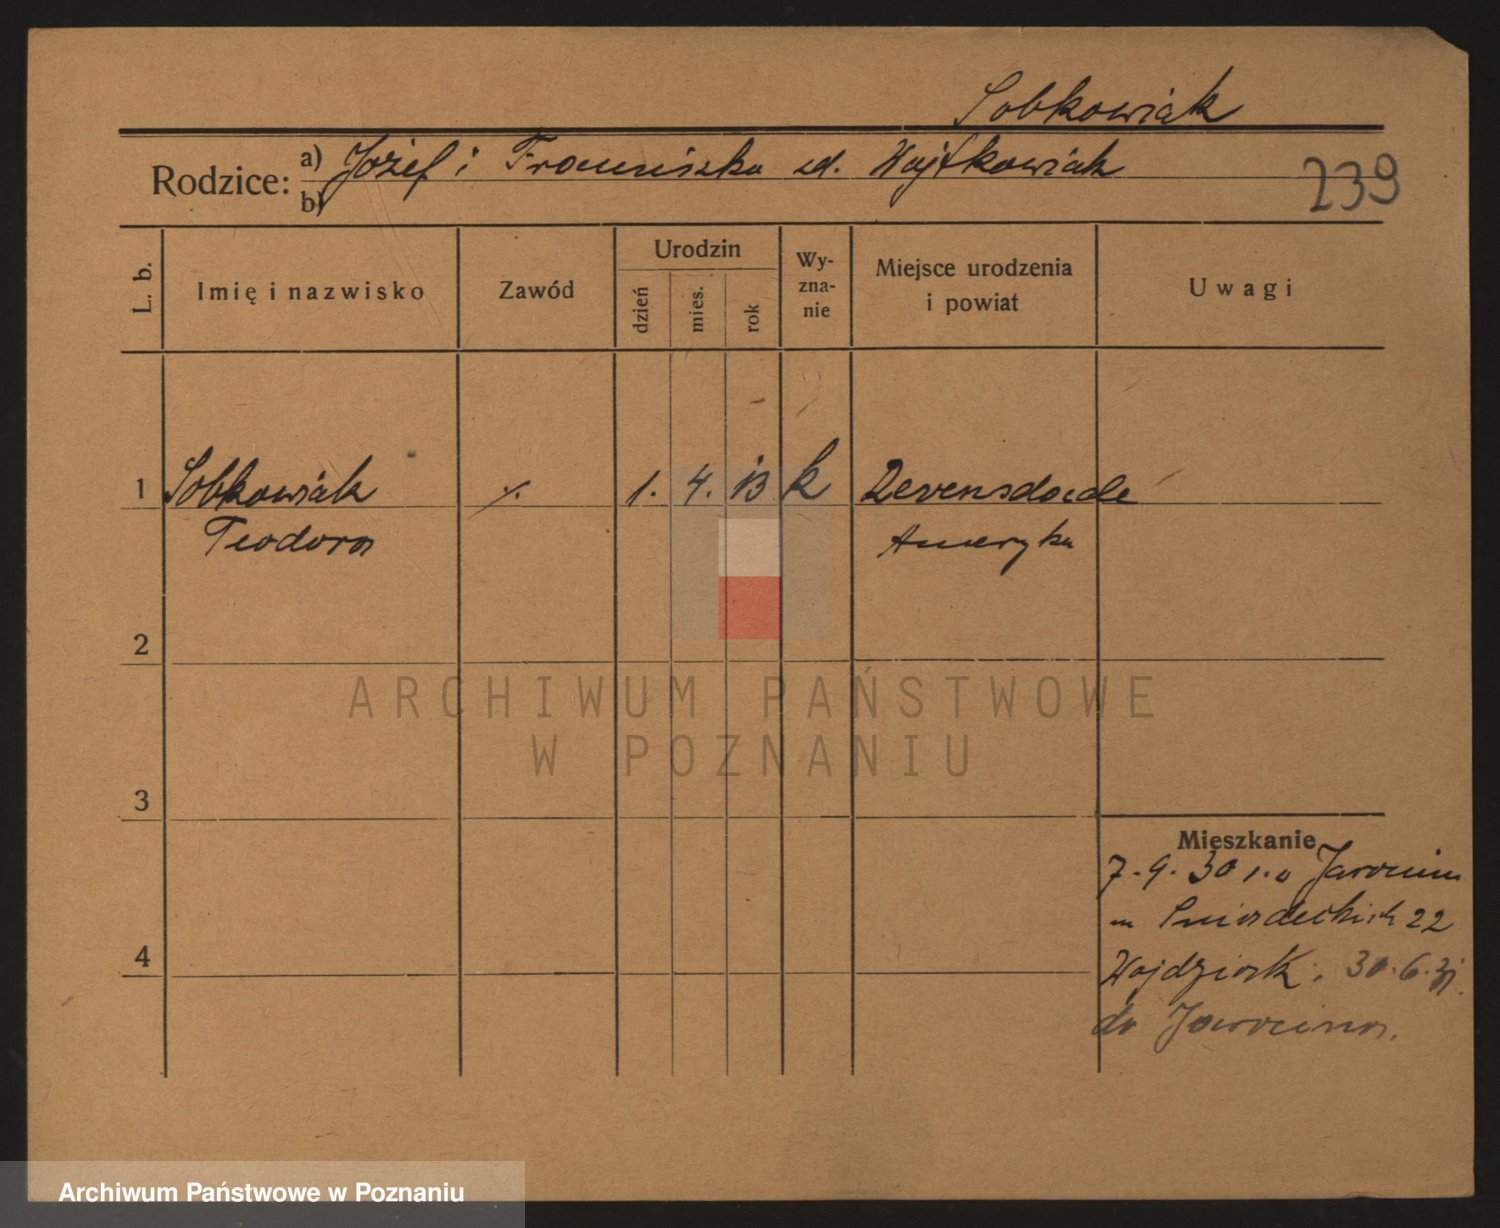 Sobkowiak
Rodzice: a) Józef i Franciszka zd. Wojtkowiak
b)
239
L. b.
Imię i nazwisko
Zawód
Urodzin
dzień
mies.
rok
Wy-
zna-
nie
Miejsce urodzenia
i powiat
Uwagi
1 Sobkowiak ./. 1. 4. 13 k
Teodora Ameryka
2
3
4
Mieszkanie
7.9.30 Jarocin
Śniadeckich 22
30.6.31
do Jarocina.
ARCHIWUM PAŃSTWOWE
W POZNANIU
Archiwum Państwowe w Poznaniu